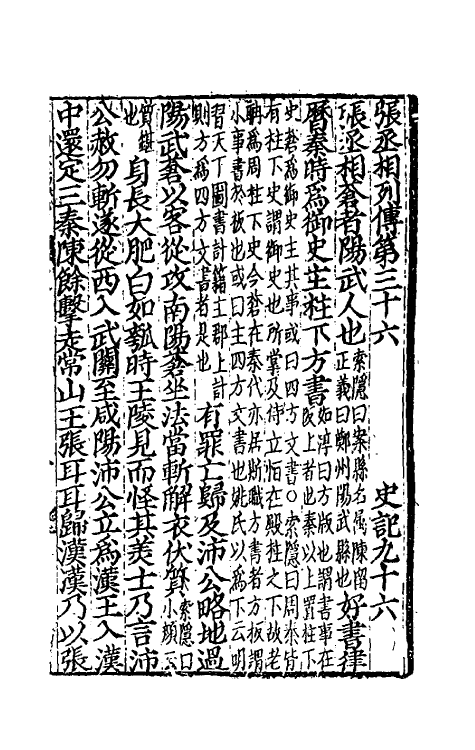 張丞相列傳第三十六　史記九十六
張丞相蒼者陽武人也索隱曰案縣名屬陳留正義曰鄭州陽武縣也好書律
曆秦時爲御史主柱下方書如淳曰方版也謂書事在版上者也秦以上置柱下
史蒼爲御史主其事或曰四方文書○索隱曰周秦皆
有柱下史謂御史也所掌及侍立恒在殿柱之下故老
聃爲周柱下史今蒼在秦代亦居斯職方書者方板謂
小事書於板也或曰主四方文書也姚氏以爲下云明
習天下圖書計籍主郡上計則方爲四方文書者是也有罪亡歸及沛公略地過
陽武蒼以客從攻南陽蒼坐法當斬解衣伏質索隱曰小顏云
質鍖也身長大肥白如瓠時王陵見而怪其美士乃言沛
公赦勿斬遂從西入武關至咸陽沛公立爲漢王入漢
中還定三秦陳餘擊走常山王張耳耳歸漢漢乃以張